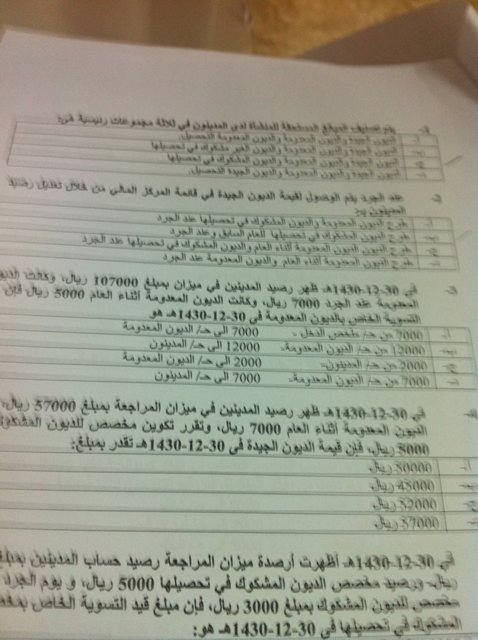 يتم تصنيف المبالغ المستحقة للمنشأة لدى المدينون في ثلاثة مجموعات رئيسية هي:
الديون الجيدة والديون المعدومة والديون المعدومة التحصيل.
الديون الجيدة والديون المعدومة والديون الغير مشكوك في تحصيلها
الديون الجيدة والديون المعدومة والديون المشكوك في تحصيلها
الديون المشكوك والديون المعدومة والديون الجيدة التحصيل.
عند الجرد يتم الوصول لقيمة الديون الجيدة في قائمة المركز المالي من خلال تعديل رصيد
المدينون بـ:
طرح الديون المعدومة والديون المشكوك في تحصيلها عند الجرد
طرح الديون المشكوك في تحصيلها للعام السابق وعند الجرد
طرح الديون المعدومة أثناء العام والديون المشكوك في تحصيلها عند الجرد
طرح الديون المعدومة أثناء العام والديون المعدومة عند الجرد
في 30-12-1430هـ ظهر رصيد المدينين في ميزان بمبلغ 107000 ريال، وكانت
المعدومة عند الجرد 7000 ريال، وكانت الديون المعدومة أثناء العام 5000 ريال فإن
التسوية الخاص بالديون المعدومة في 30-12-1430هـ هو
أ- 7000 من حـ/ ملخص الدخل - 7000 الى حـ/ الديون المعدومة
ب- 12000 من حـ/ الديون المعدومة- 12000 الى حـ/ المدينون
ج- 2000 من حـ/ المدينون- 2000 الى حـ/ الديون المعدومة
7000 من حـ/ الديون المعدومة- 7000 الى حـ/ المدينون
في 30-12-1430هـ ظهر رصيد المدينين في ميزان المراجعة بمبلغ 57000 ريال،
الديون المعدومة أثناء العام 7000 ريال، وتقرر تكوين مخصص للديون
5000 ريال، فإن قيمة الديون الجيدة في 30-12-1430هـ تقدر بمبلغ:
أ- 50000 ريال
ب- 45000 ريال
ج- 52000 ريال
57000 ريال
في 30-12-1430هـ أظهرت أرصدة ميزان المراجعة رصيد حساب المدينين
ريال، ورصيد مخصص الديون المشكوك في تحصيلها 5000 ريال، و يوم الجرد
مخصص للديون المشكوك بمبلغ 3000 ريال، فإن مبلغ قيد التسوية الخاص
المشكوك في تحصيلها في 30-12-1430هـ هو: